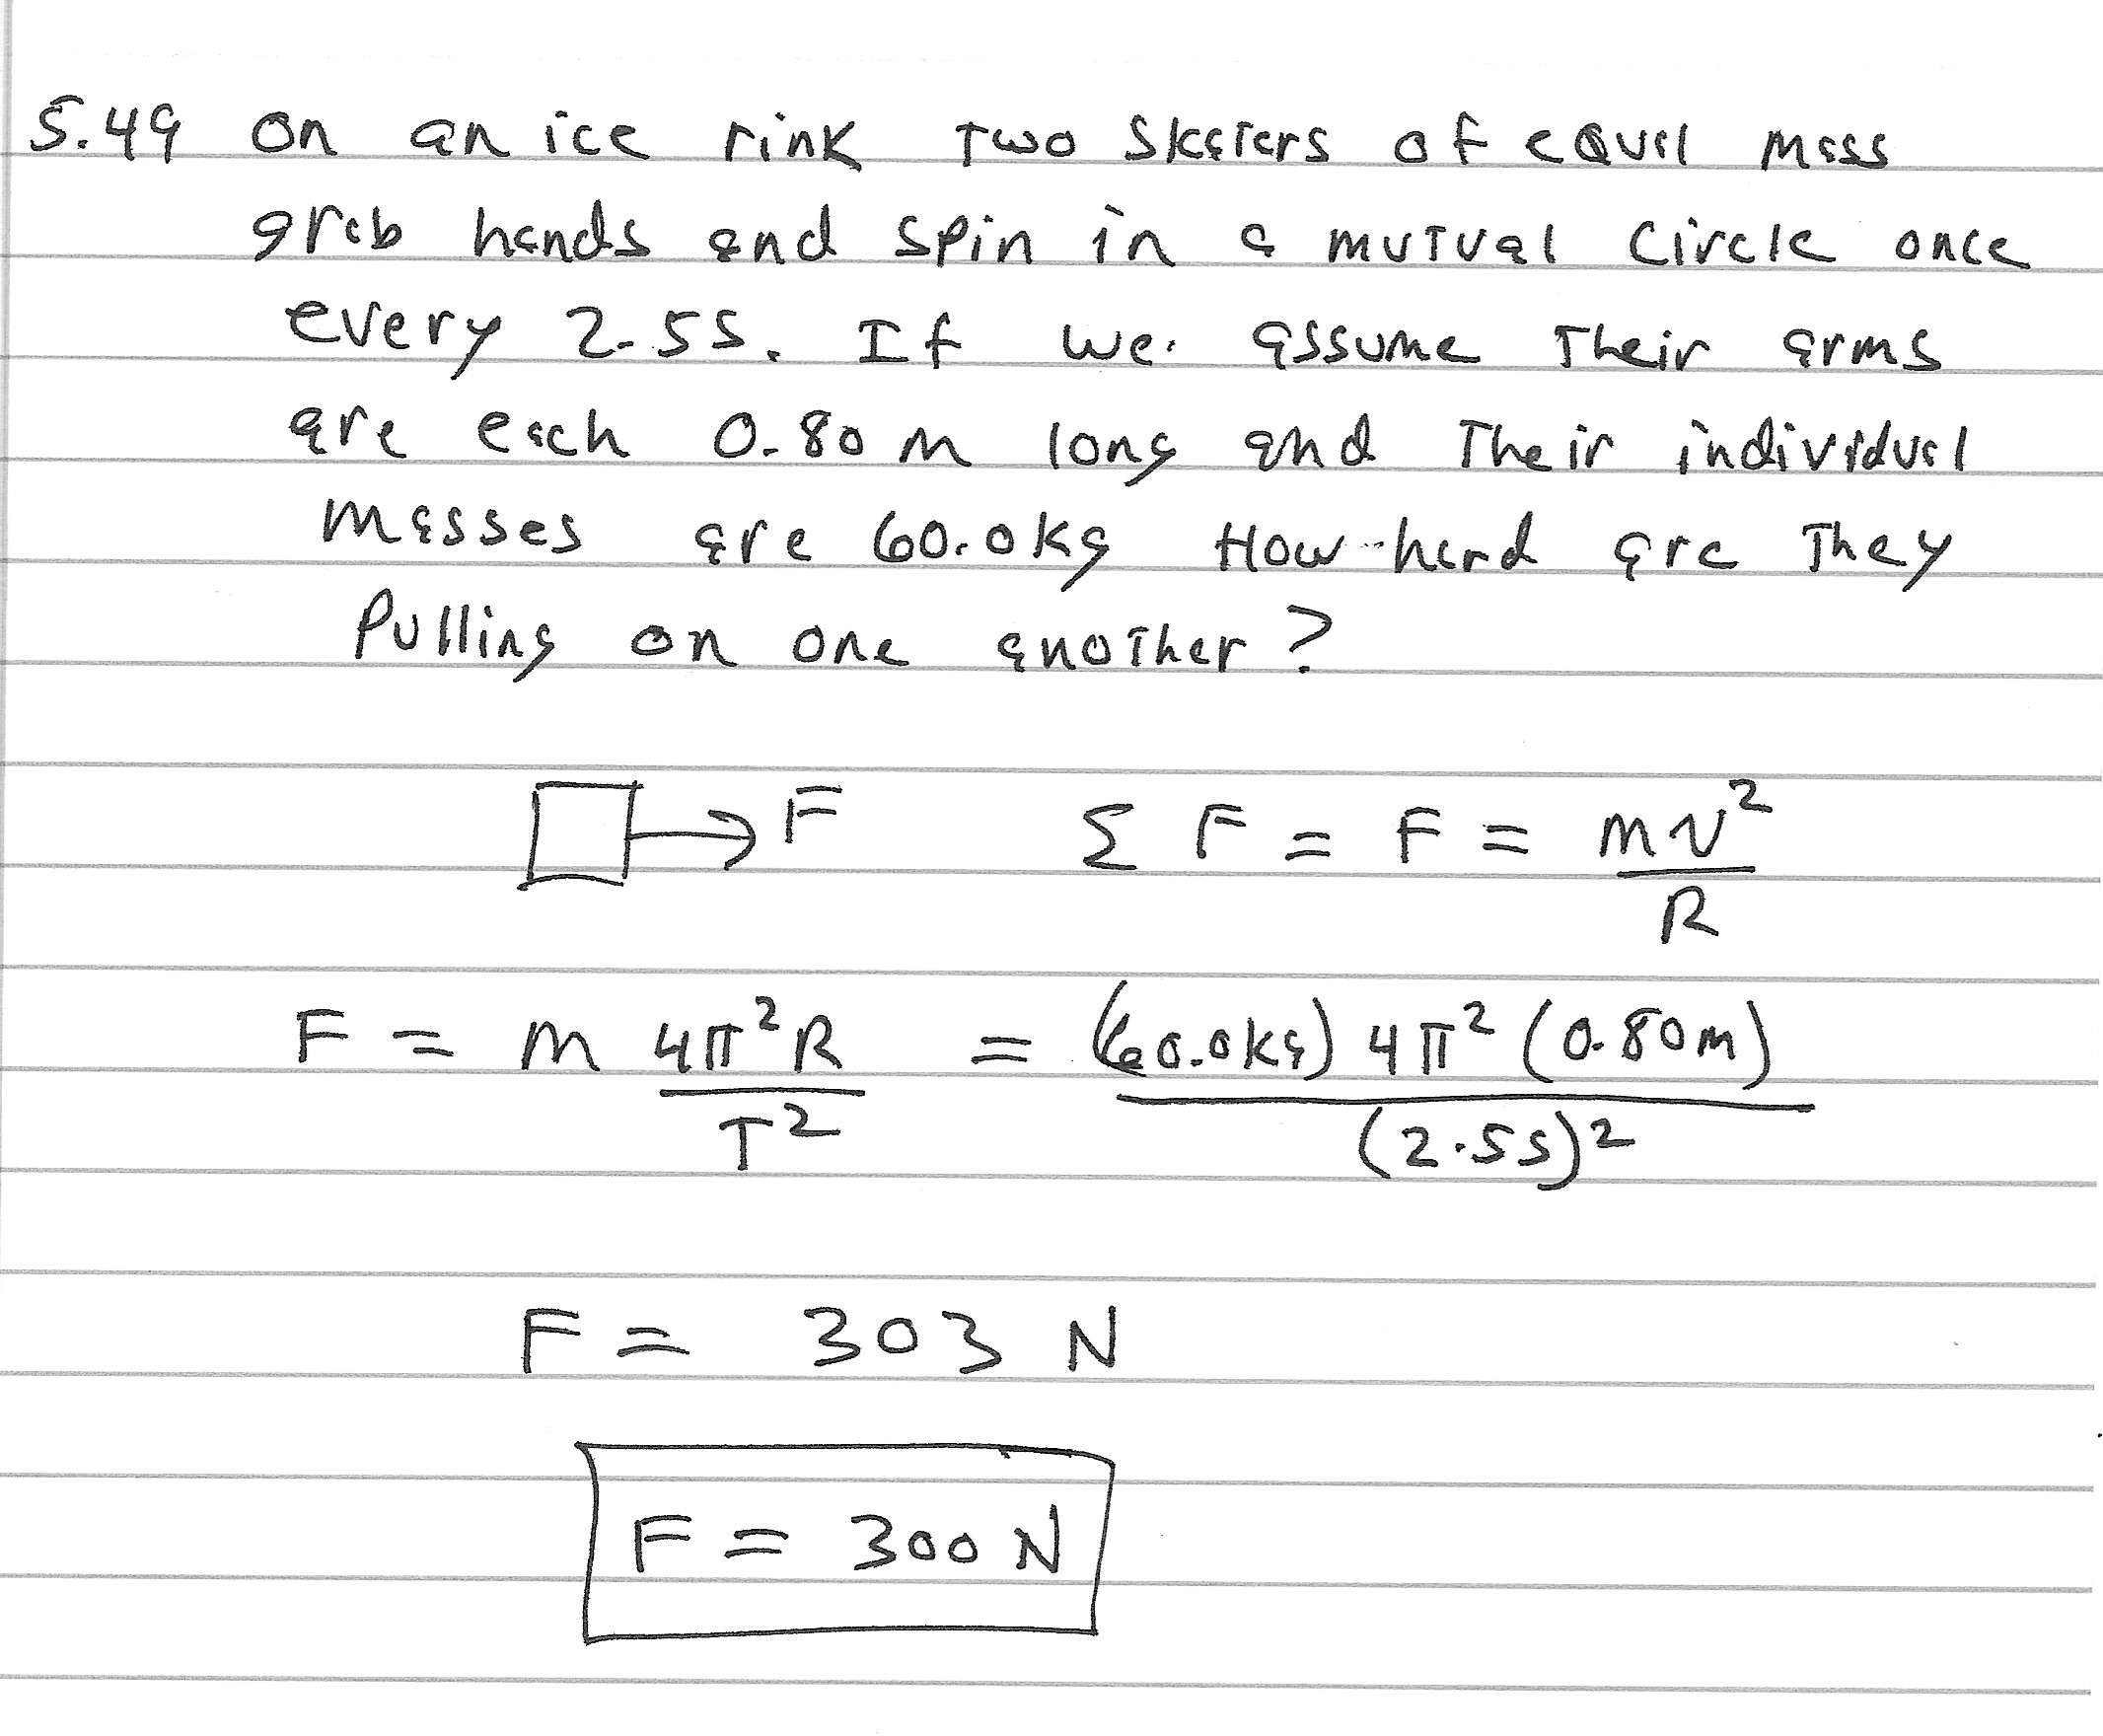 5.49 On an ice rink two skaters of equal mass
grab hands and spin in a mutual circle once
every 2.5s. If we assume their arms
are each 0.80 m long and their individual
masses are 60.0kg How hard are they
pulling on one another?
F Σ F = F = mv²
R
F = m 4π²R = (60.0kg) 4π² (0.80m)
T² (2.5s)²
F = 303 N
F = 300 N